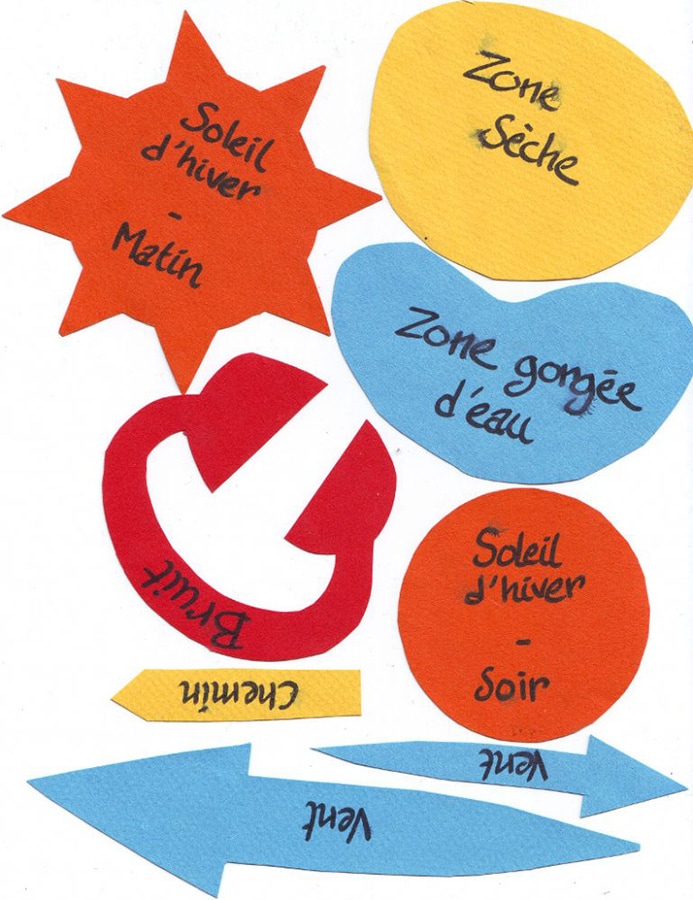 Soleil
d'hiver
-
Matin
Zone
Sèche
Zone gorgée
d'eau
Bruit
Soleil
d'hiver
-
Soir
Chemin
Vent
Vent